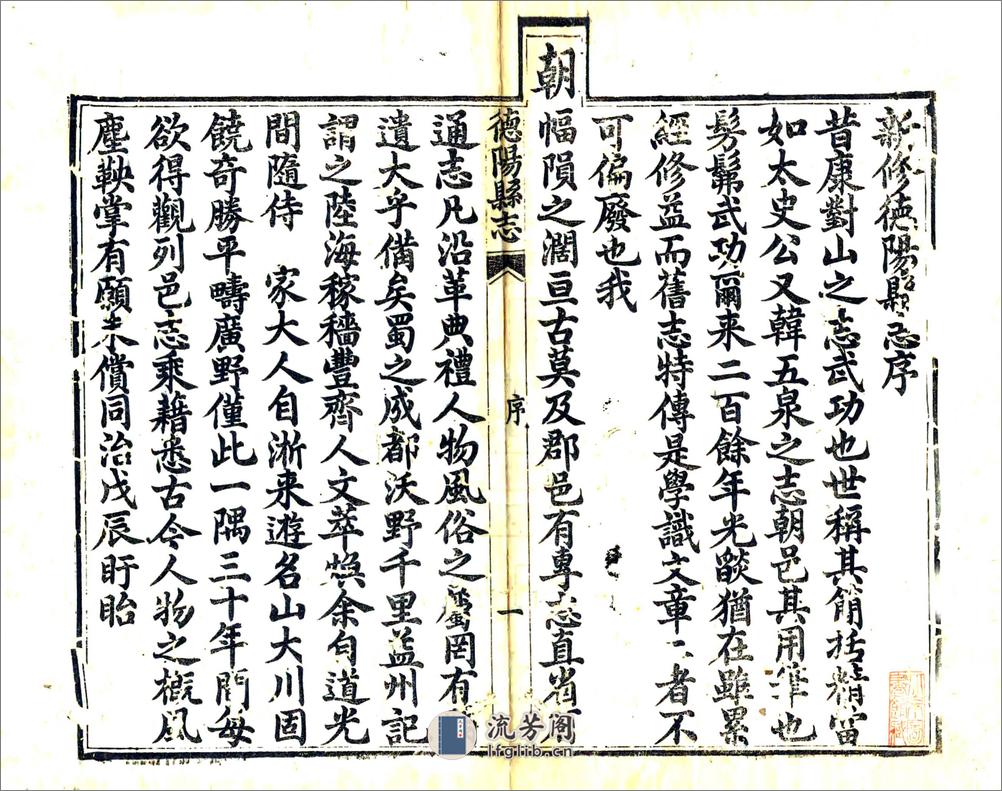 新修德陽縣志序
昔康對山之志武功也世稱其簡括精當
如太史公又韓五泉之志朝邑其用筆也
髣髴武功爾来二百餘年光燄猶在雖累
經修益而舊志特傳是學識文章二者不
可偏廢也我
朝
幅隕之濶亘古莫及郡邑有專志直省有
德陽縣志
序
一
通志凡沿革典禮人物風俗之屬罔有
遺大乎備矣蜀之成都沃野千里益州記
謂之陸海稼穡豐齊人文萃煥余自道光
間隨侍 家大人自淅来遊名山大川固
饒奇勝平疇廣野僅此一隅三十年間每
欲得觀列邑志乘藉悉古今人物之概風
塵鞅掌有願未償同治戊辰盱眙
流芳阁
lfglib.cn